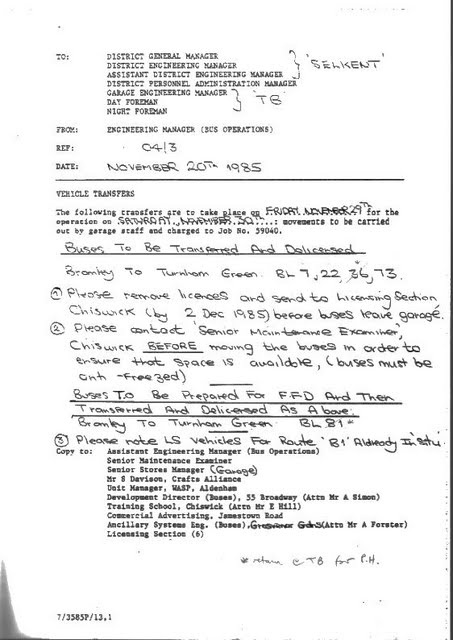 TO: DISTRICT GENERAL MANAGER
DISTRICT ENGINEERING MANAGER 'SELKENT'
ASSISTANT DISTRICT ENGINEERING MANAGER
DISTRICT PERSONNEL ADMINISTRATION MANAGER
GARAGE ENGINEERING MANAGER
DAY FOREMAN 'TB'
NIGHT FOREMAN
FROM: ENGINEERING MANAGER (BUS OPERATIONS)
REF: 04/3
DATE: NOVEMBER 20TH 1985
VEHICLE TRANSFERS
The following transfers are to take place on FRIDAY NOVEMBER 29TH for the
operation on SATURDAY, NOVEMBER 30TH...: movements to be carried
out by garage staff and charged to Job No. 59040.
Buses To Be Transferred And Delicensed
Bromley To Turnham Green. BL 7, 22, 36, 73.
① Please remove licences and send to Licensing Section,
Chiswick (by 2 Dec 1985) before buses leave garage.
② Please contact 'Senior Maintenance Examiner',
Chiswick BEFORE moving the buses in order to
ensure that space is available, (buses must be
anti-Freezed)
Buses To Be Prepared For F.F.D And Then
Transferred And Delicensed As Above.
Bromley To Turnham Green. BL 81*
③ Please note LS Vehicles For Route 'B1' Already In Situ.
Copy to: Assistant Engineering Manager (Bus Operations)
Senior Maintenance Examiner
Senior Stores Manager (Garage)
Mr S Davison, Crafts Alliance
Unit Manager, WASP, Aldenham
Development Director (Buses), 55 Broadway (Attn Mr A Simon)
Training School, Chiswick (Attn Mr E Hill)
Commercial Advertising, Jamestown Road
Ancillary Systems Eng. (Buses), Grosvenor Gdns (Attn Mr A Forster)
Licensing Section (6)
* return @ TB for P.H.
7/3585P/13.1